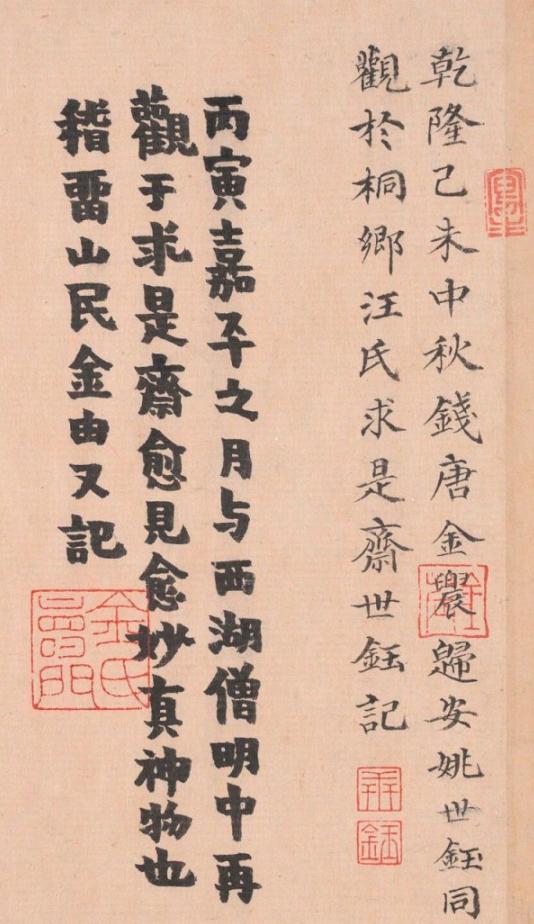 乾隆己未中秋錢唐金農歸安姚世鈺同
觀於桐鄉汪氏求是齋世鈺記
丙寅嘉平之月与西湖僧明中再
觀于求是齋愈見愈妙真神物也
稽畱山民金由又記
金氏壽門